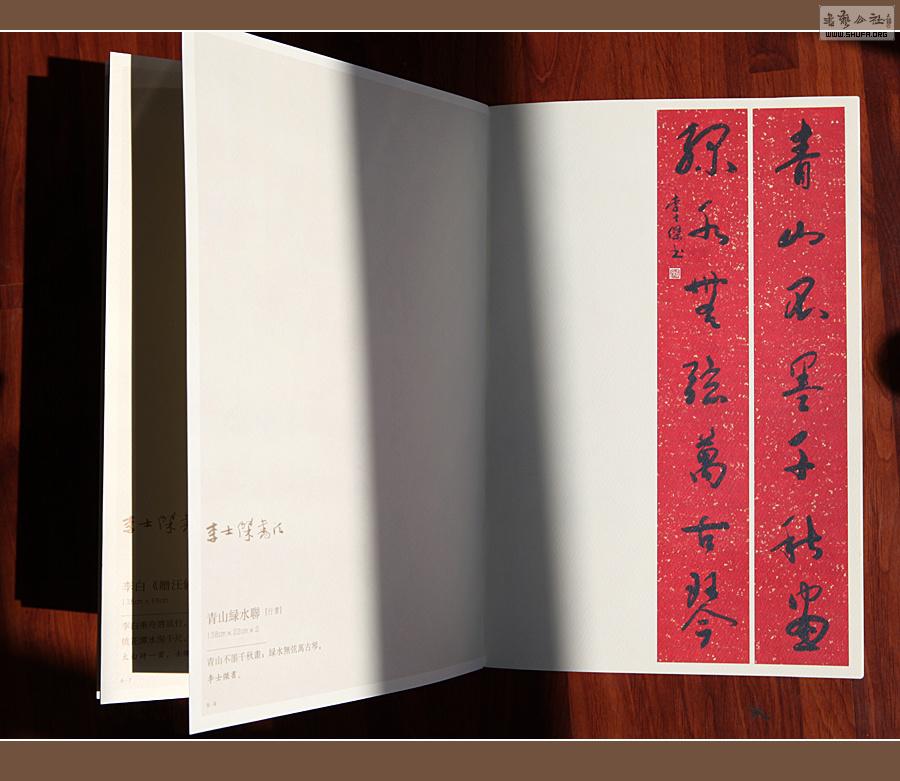 書藝公社
WWW.SHUFA.ORG
青山不墨千秋畫
綠水無弦萬古琴
李士傑書
李士傑書法
青山緑水聯 [行書]
138cm x 22cm x 2
青山不墨千秋畫；緑水無弦萬古琴。
李士傑書。
李士傑書
李白《贈汪
李白乘舟將欲行，
桃花潭水深千尺，